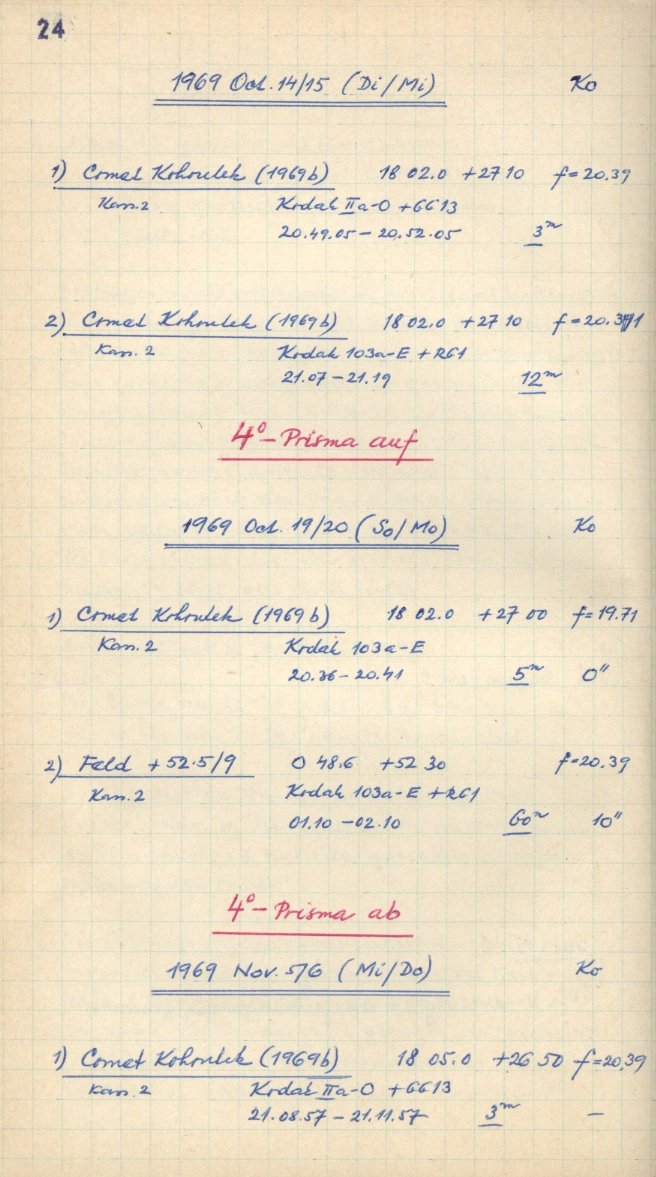 24
1969 Oct. 14/15 (Di/Mi) Ko
1) Comet Kohoutek (1969b) 18 02.0 +27 10 f=20.39
Kass. 2 Kodak IIa-O + GG13
20.49.05 – 20.52.05 3m
2) Comet Kohoutek (1969b) 18 02.0 +27 10 f=20.41
Kass. 2 Kodak 103a-E + RG1
21.07 – 21.19 12m
4°-Prisma auf
1969 Oct. 19/20 (So/Mo) Ko
1) Comet Kohoutek (1969b) 18 02.0 +27 00 f=19.71
Kass. 2 Kodak 103a-E
20.36 – 20.41 5m 0"
2) Feld +52.5/9 0 48.6 +52 30 f=20.39
Kass. 2 Kodak 103a-E + RG1
01.10 – 02.10 60m 10"
4°-Prisma ab
1969 Nov. 5/6 (Mi/Do) Ko
1) Comet Kohoutek (1969b) 18 05.0 +26 50 f=20,39
Kass. 2 Kodak IIa-O + GG13
21.08.57 – 21.11.57 3m –